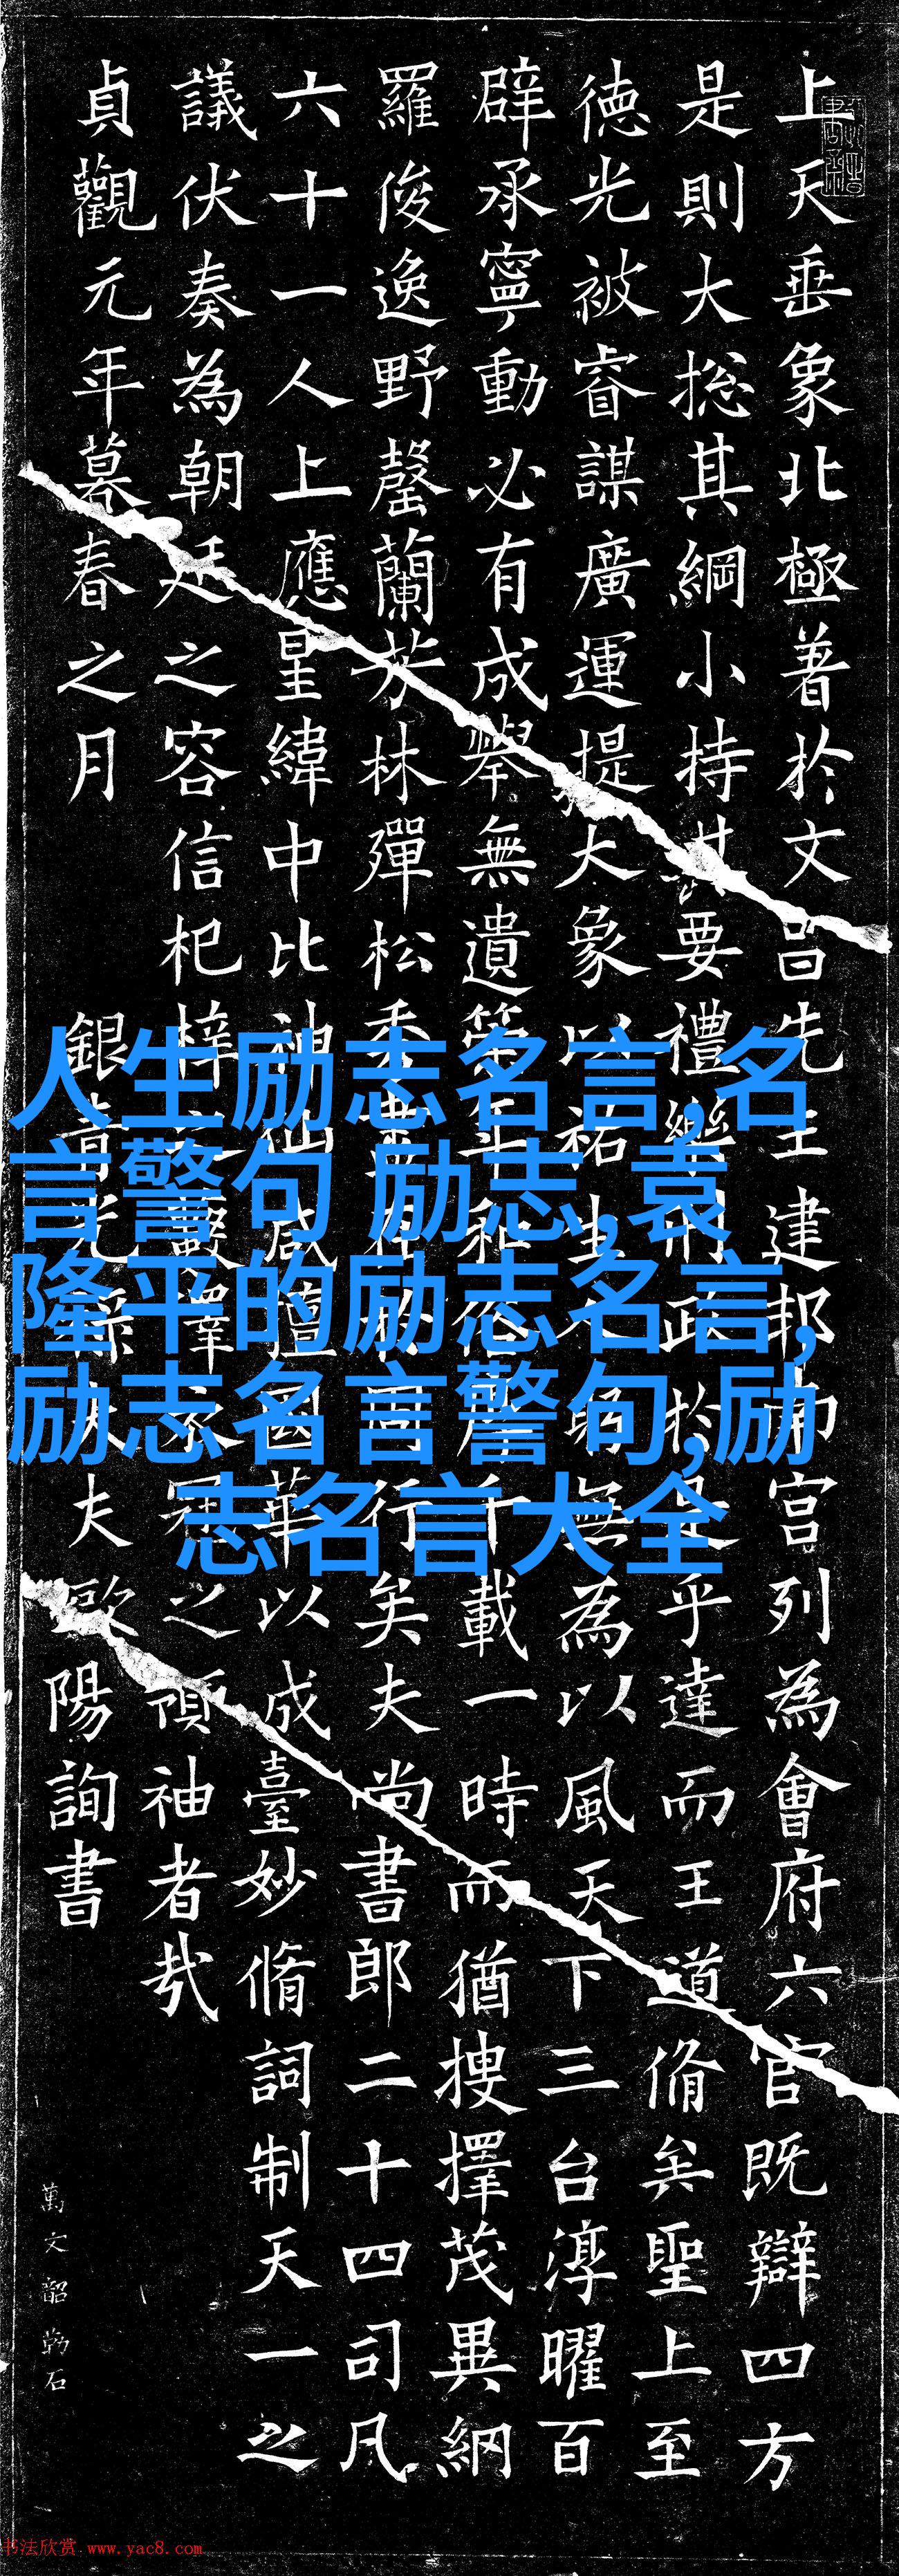 上天垂象北極著於文昌先王建邦南宮列為會府六官既辯四方
是則大捴其綱小持其要禮樂刑政於是乎達而王道脩矣聖上至
德光被睿謀廣運提大象以祐生躬無為以風天下三台淳曜百
辟承寧動必有成舉無遺策年和俗千載一時而猶搜擇茂異網
羅俊逸野罄蘭芬林殫松秀在於周行矣夫尚書郎二十四司凡
六十一人上應星緯中比神仙咸擅國華以成臺妙脩詞制天一之
議伏奏為朝廷之容信杞梓之藪澤衣冠之領袖者哉
貞觀元年暮春之月 銀青光祿大夫歐陽詢書
萬文韶勒石
人生励志名言,名
言警句 励志,袁
隆平的励志名言,
励志名言警句,励
志名言大全
书法欣赏 www.yac8.com